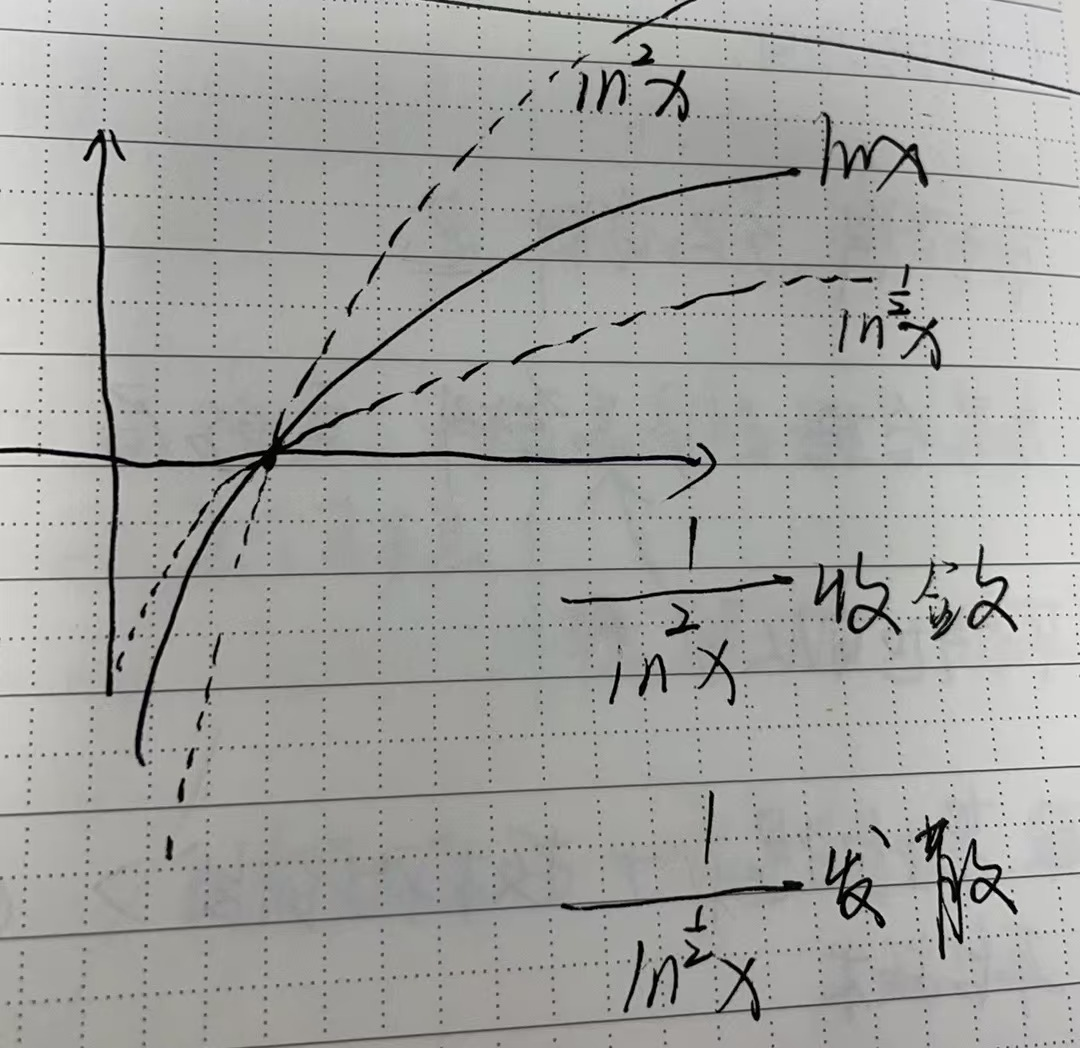 ln²x
lnx
ln^{\frac{1}{2}}x
\frac{1}{ln²x} 收敛
\frac{1}{ln^{\frac{1}{2}}x} 发散